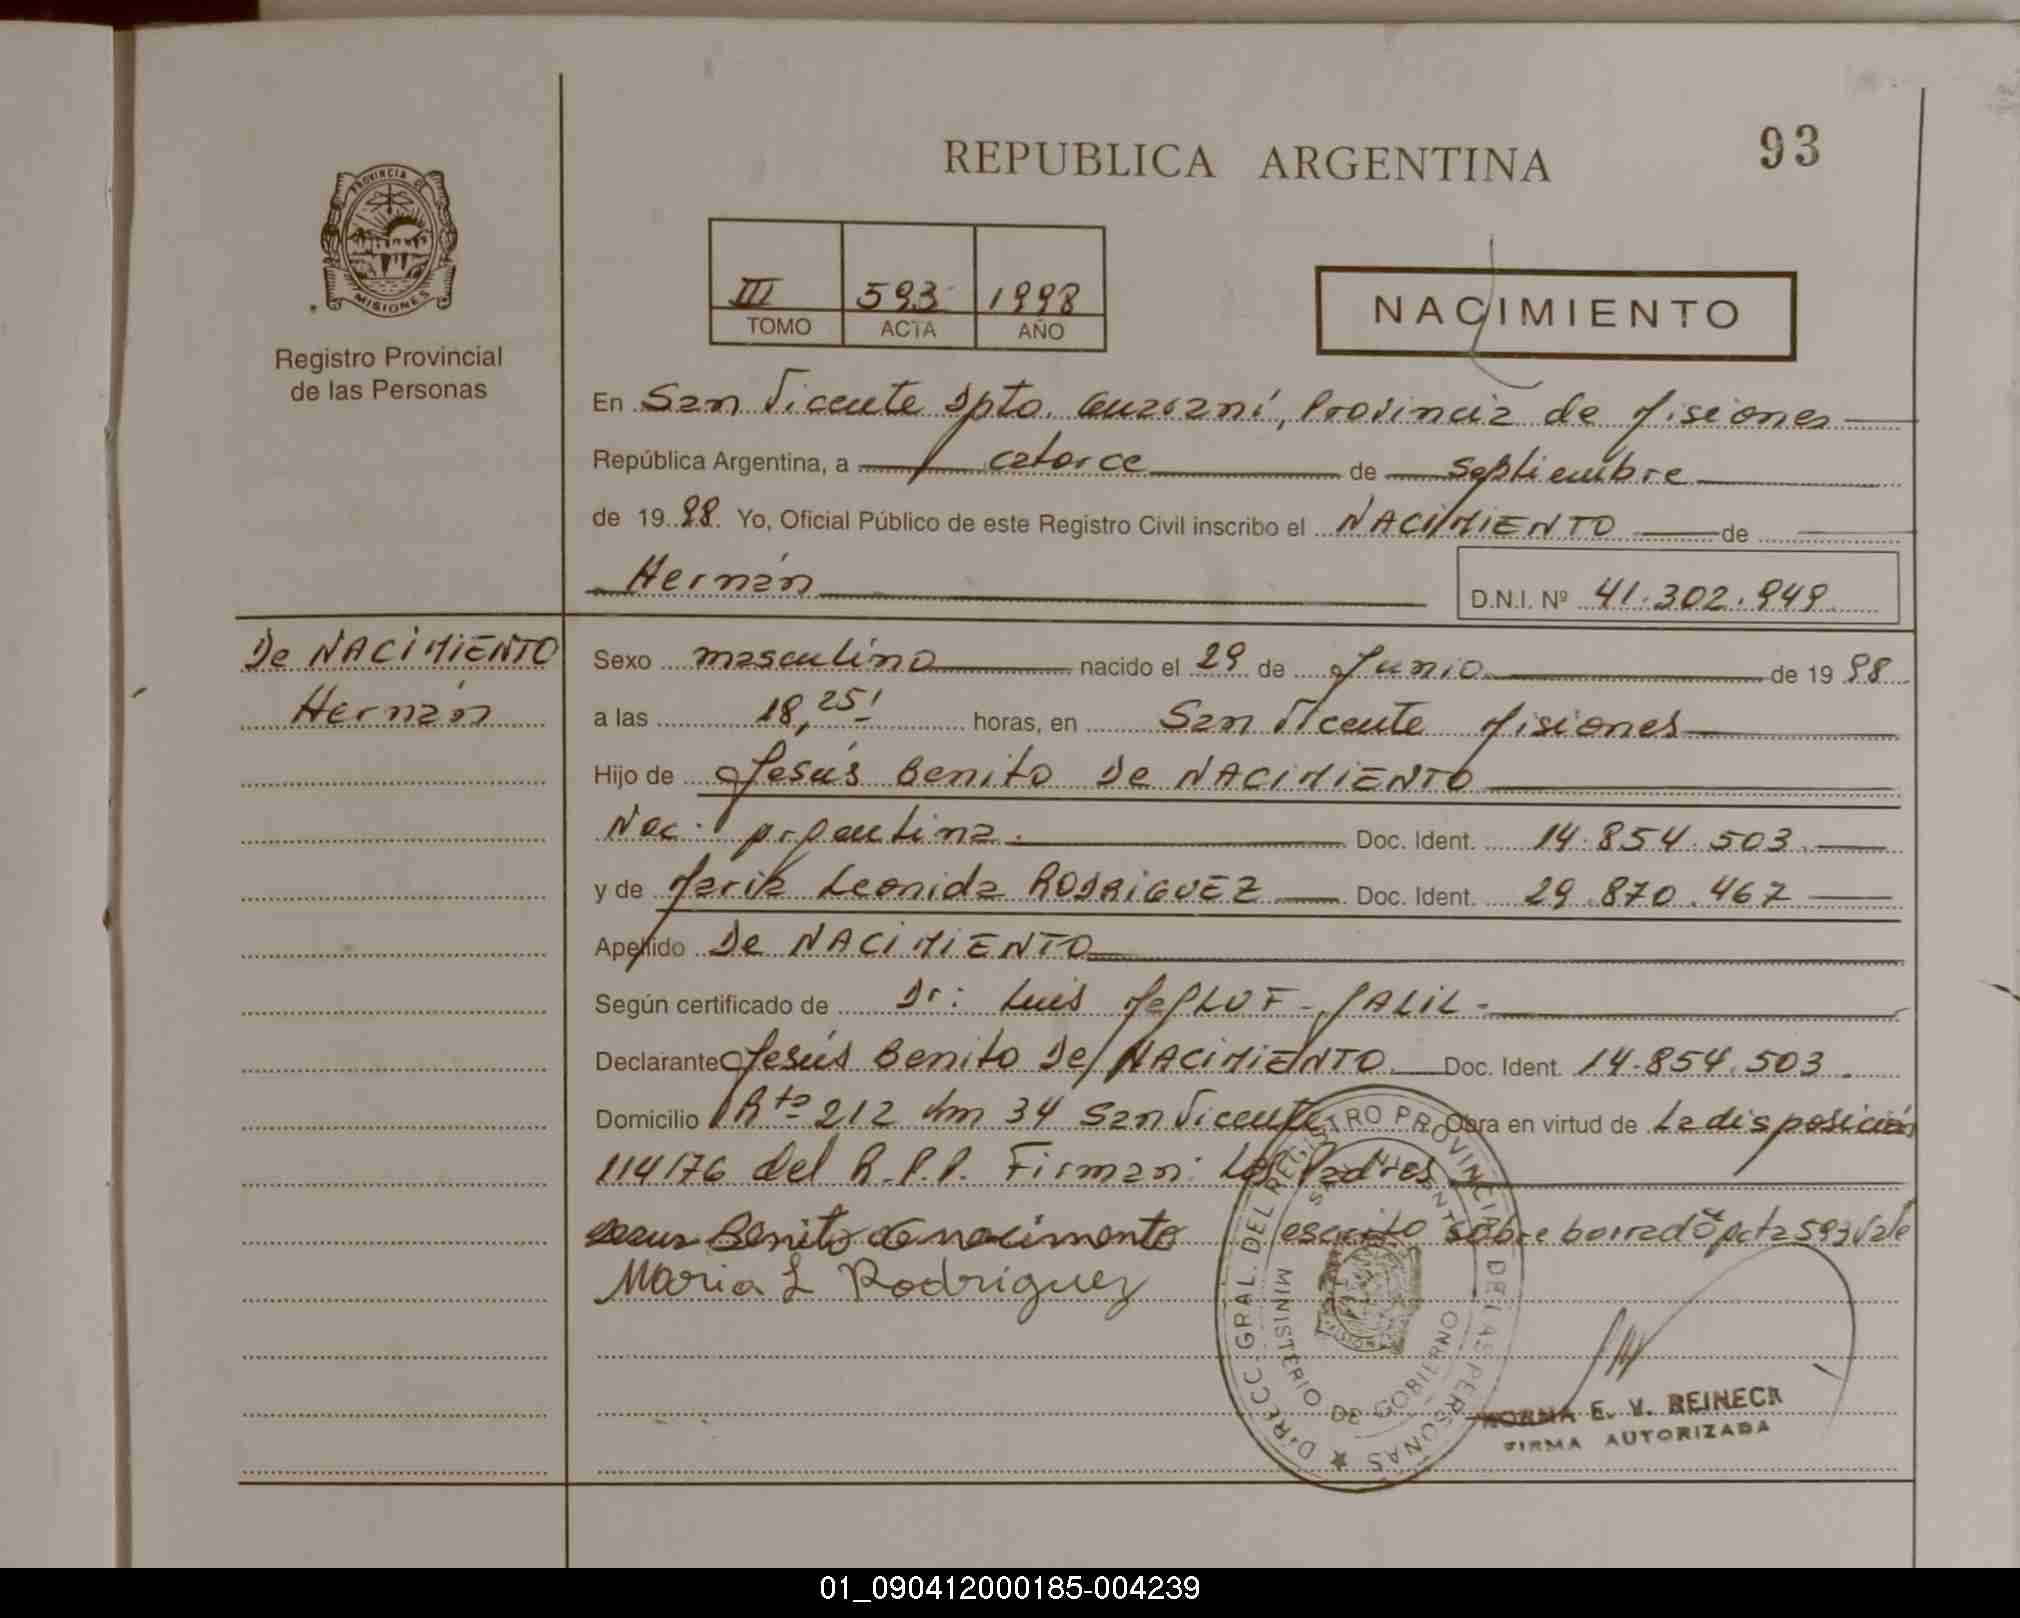 93
REPUBLICA ARGENTINA
PROVINCIA DE
MISIONES
Registro Provincial
de las Personas
III 593 1998
TOMO ACTA AÑO
NACIMIENTO
En San Vicente Dpto. Guaraní, Provincia de Misiones
República Argentina, a catorce de Septiembre
de 1998. Yo, Oficial Público de este Registro Civil inscribo el NACIMIENTO de
Hernán
D.N.I. Nº 41.302.949
De NACIMIENTO
Hernán
Sexo masculino nacido el 29 de Junio de 1998
a las 18,25' horas, en San Vicente Misiones
Hijo de Jesús Benito De NACIMIENTO
Nac. Argentina. Doc. Ident. 14.854.503
y de María Leonida RODRIGUEZ Doc. Ident. 29.870.467
Apellido De NACIMIENTO
Según certificado de Dr: Luis JALIL-
Declarante Jesús Benito De NACIMIENTO Doc. Ident. 14.854.503.
Domicilio Rta 212 Km 34 San Vicente Obra en virtud de La disposición
114/76 del R.P.P. Firman: Los Padres
Benito De nacimento escrito sobre borrado acta 593 Vale
Maria L Rodriguez
DIRECC. GRAL. DEL REGISTRO PROVINCIAL DE LAS PERSONAS
MINISTERIO DE GOBIERNO
NORMA E. V. REINECK
FIRMA AUTORIZADA
01_090412000185-004239